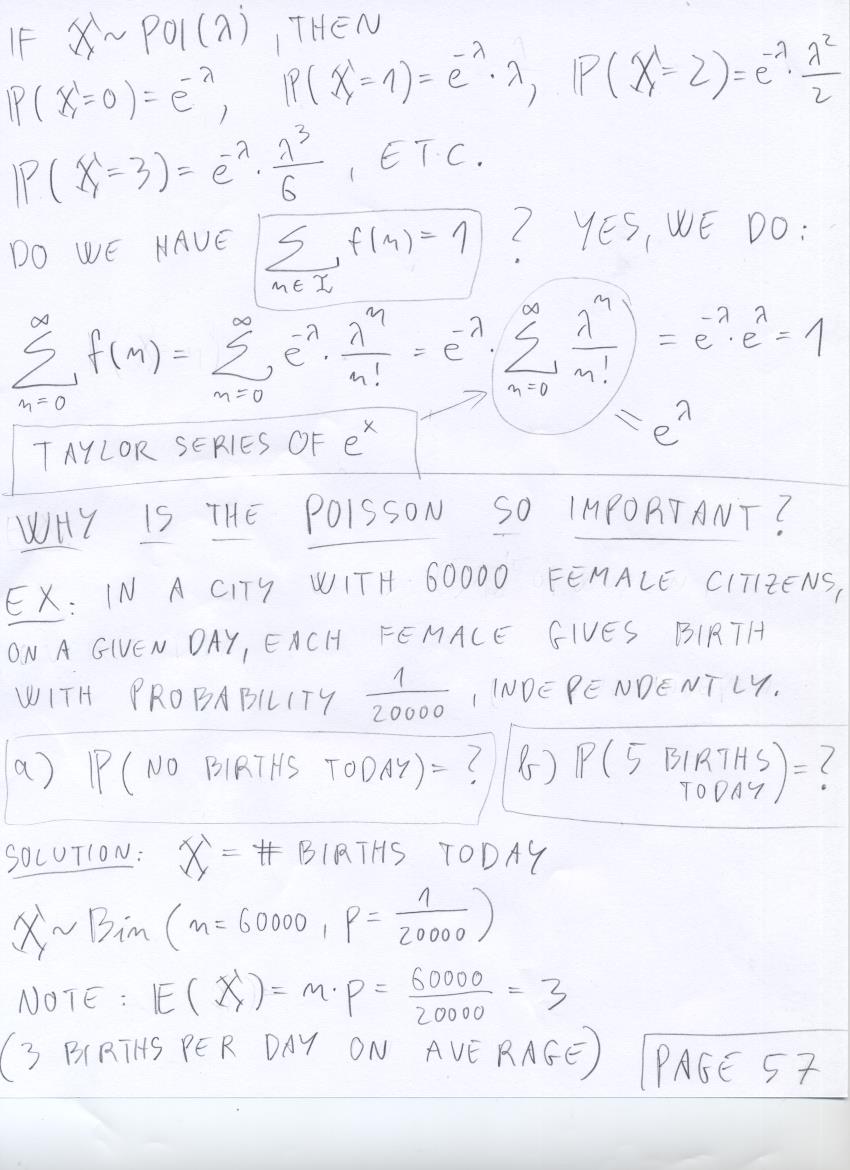 IF X ~ POI(λ), THEN
P(X=0) = e^{-λ}, P(X=1) = e^{-λ}·λ, P(X=2) = e^{-λ}·λ²/2
P(X=3) = e^{-λ}·λ³/6, ETC.
DO WE HAVE Σ_{n∈I} f(n) = 1 ? YES, WE DO:
Σ_{n=0}^{∞} f(n) = Σ_{n=0}^{∞} e^{-λ}·λ^n/n! = e^{-λ}·Σ_{n=0}^{∞} λ^n/n! = e^{-λ}·e^{λ} = 1
= e^{λ}
TAYLOR SERIES OF e^x
WHY IS THE POISSON SO IMPORTANT?
EX: IN A CITY WITH 60000 FEMALE CITIZENS,
ON A GIVEN DAY, EACH FEMALE GIVES BIRTH
WITH PROBABILITY 1/20000, INDEPENDENTLY.
a) P(NO BIRTHS TODAY) = ? b) P(5 BIRTHS TODAY) = ?
SOLUTION: X = # BIRTHS TODAY
X ~ Bin(n = 60000, p = 1/20000)
NOTE: E(X) = n·p = 60000/20000 = 3
(3 BIRTHS PER DAY ON AVERAGE) PAGE 57